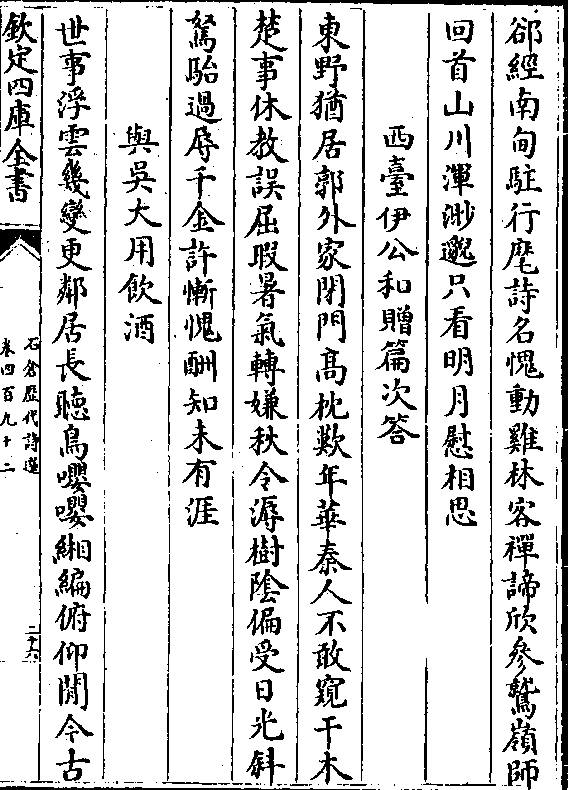 郤經南甸駐行麾詩名愧動雞林客禪諦欣參鷲嶺師
回首山川渾渺邈只看明月慰相思
西臺伊公和贈篇次答
東野猶居郭外家閉門髙枕歎年華秦人不敢窺干木
楚事休教誤屈瑕暑氣轉嫌秋令溽樹陰偏受日光斜
駑駘過辱千金許慚愧酬知未有涯
與吳大用飲酒
世事浮雲幾變更鄰居長聽鳥嚶嚶緗編俯仰閒今古
欽定四庫全書
石倉歴代詩選
卷四百九十二
二十六